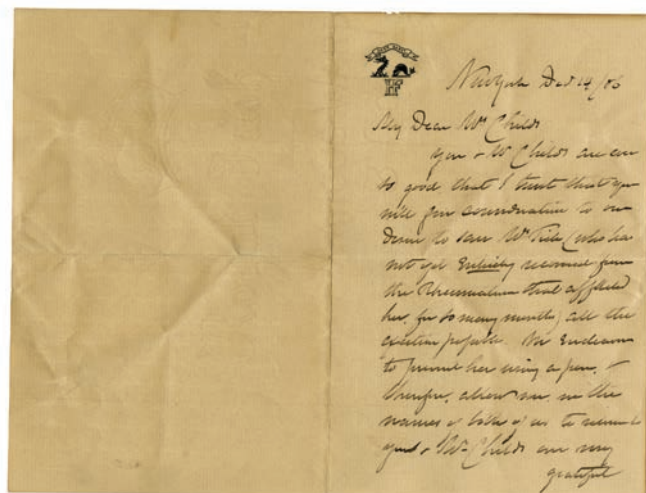 New York Dec 14/86
My Dear Mrs Childs
You & Mr Childs are ever
so good that I trust that you
will give consideration to our
desire to save Mrs (who has
not yet Entirely recovered from
the Rheumatism that afflicted
her, for so many months) all the
exertion possible. We Endeavor
to prevent her using a pen, &
therefore, allow me, in the
names of both of us to
you & Mr Childs our very
grateful